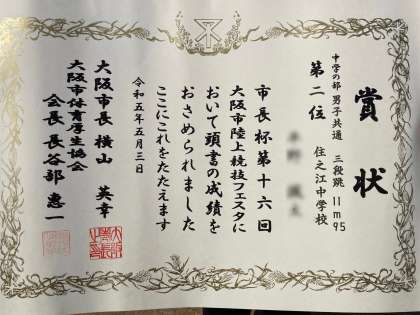 賞状
中学の部 男子共通 三段跳 11m95
第二位 住之江中学校
市長杯第十六回
大阪市陸上競技フェスタに
おいて頭書の成績を
おさめられました
ここにこれをたたえます
令和五年五月三日
大阪市長 横山 英幸
大阪市体育厚生協会
会長 長谷部 惠一